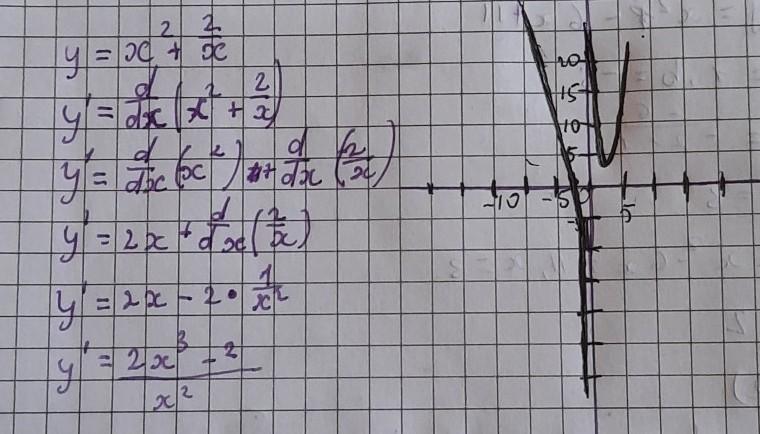 y = x² + 2/x
y' = d/dx (x² + 2/x)
y' = d/dx (x²) + d/dx (2/x)
y' = 2x + d/dx (2/x)
y' = 2x - 2 • 1/x²
y' = 2x³ - 2 / x²
20
15
10
5
-10 -5 0 5